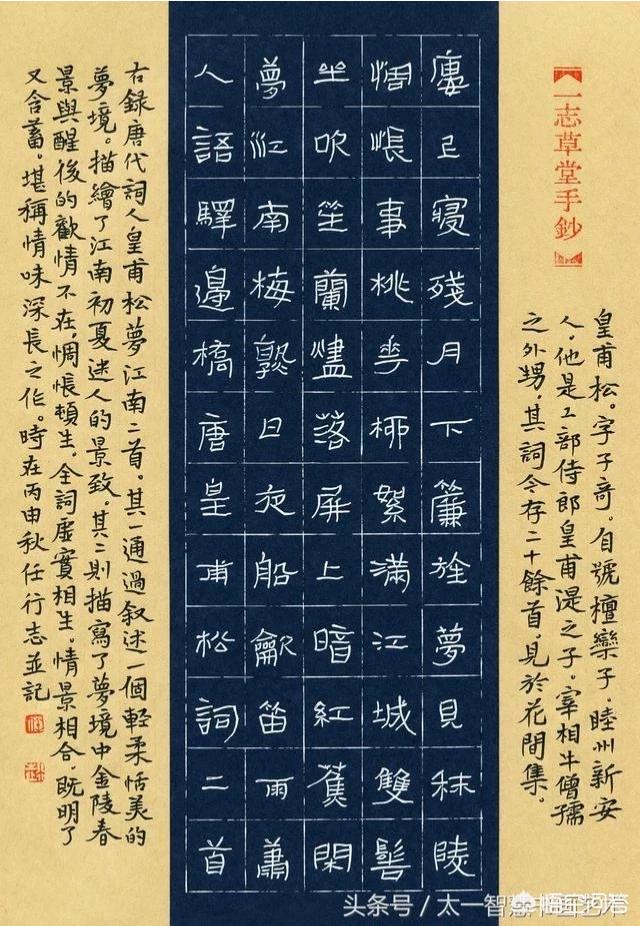 一志草堂手鈔
皇甫松。字子奇。自號檀欒子。睦州新安
人。他是工部侍郎皇甫湜之子。宰相牛僧孺
之外甥。其詞今存二十餘首。見於花間集。
廔上寢殘月下簾旌夢見秣陵
惆悵事桃花柳絮滿江城雙髻
坐吹笙蘭燼落屏上暗紅蕉閑
夢江南梅熟日夜船龡笛雨蕭
人語驛邊橋唐皇甫松詞二首
右錄唐代詞人皇甫松夢江南二首。其一通過叙述一個輕柔恬美的
夢境。描繪了江南初夏迷人的景致。其二則描寫了夢境中金陵春
景與醒後的歡情不在。惆悵頓生。全詞虛實相生。情景相合。既明了
又含蓄。堪稱情味深長之作。時在丙申秋任行志並記
头条号 / 太一智慧
悟空问答